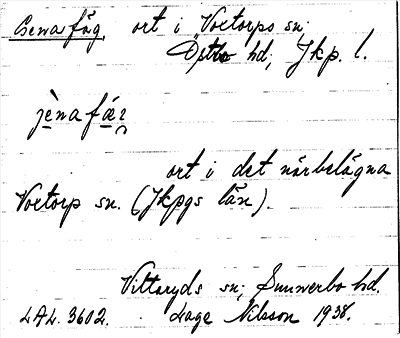 Genafåg, ort i Voxtorps sn;
Östbo hd; Jkp. l.
jènafǽr
ort i det närbelägna
Voxtorp sn. (Jkpgs län).
Vittaryds sn; Sunnerbo hd.
LAL. 3602. Lage Nilsson 1938.